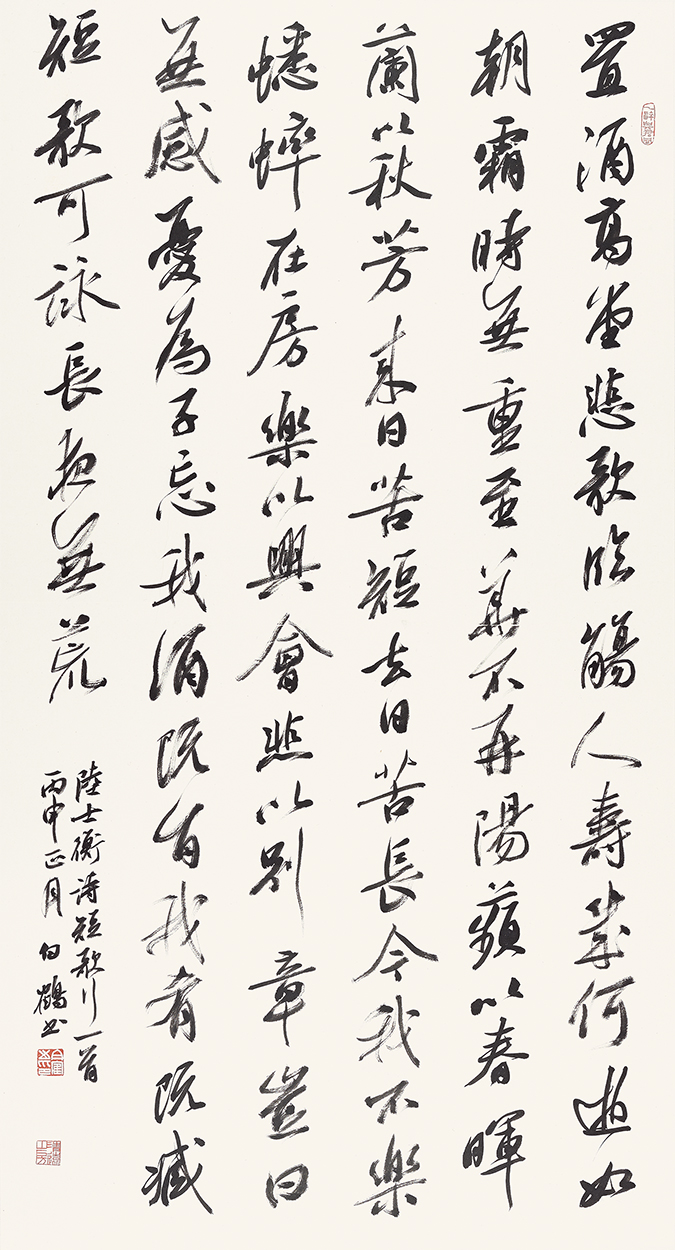 置酒高堂悲歌臨觴人壽幾何逝如
朝霜時無重至華不再陽蘋以春暉
蘭以秋芳來日苦短去日苦長今我不樂
蟋蟀在房樂以興會悲以別章豈曰
無感憂為子忘我酒既旨我肴既臧
短歌可詠長夜無荒
陸士衡詩短歌行一首
丙申正月白鶴書